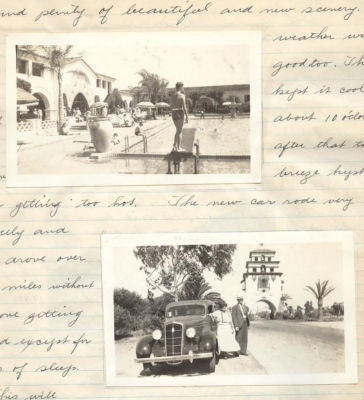 and plenty of beautiful and new scenery.
weather wo
good too. The
kept it cool
about 10 o'clo
after that t
breeze kept
getting too hot. The new car rode very
and
drove over
miles without
ove getting
d except for
s of sleep.
This will